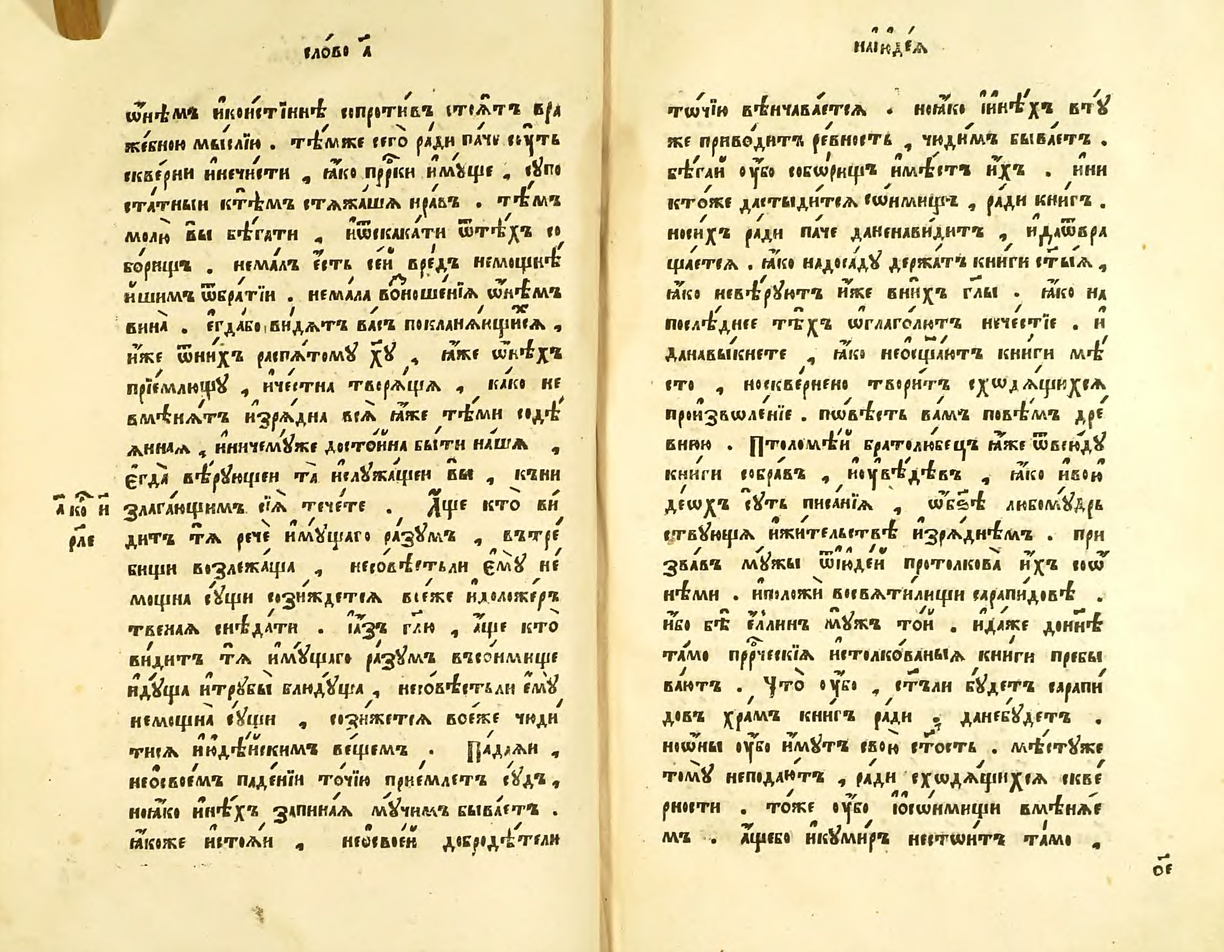 сло́во а҃
ѡ҆не́мъ и҆кои́стиннѣ сопроти́въ стоѧ́тъ вра
же́бною мы́слїю . тѣ́мже сего̀ ра́ди па́че сꙋ́ть
скве́рни и҆нечи́сти , ꙗ҆́ко прⷪ҇рки и҆мꙋ́ще , сꙋпо
ста́тныи ктѣ́мъ стѧжа́шѧ нра́въ . тѣ́мъ
молю̀ вы̀ бѣ́гати , и҆ѿска́кати ѿтѣ́хъ со
бо́рищъ . нема́лъ є҆́сть се́й вре́дъ немощнѣ́
йшимъ ѿбра́тїи . нема́ла воⷩ҇оше́нїѧ ѡ҆нѣ́мъ
вина̀ . є҆гда́бо ви́дѧтъ ва́съ поклана́ющиⷯсѧ ,
и҆́же ѿни́хъ распѧ́томꙋ хⷭ҇ꙋ , ꙗ҆́же ѡ҆нѣ́хъ
прїе́млющꙋ , и҆че́стна творѧ́ща , ка́ко не
вмѣнѧ́тъ и҆зрѧ́дна всѧ̀ ꙗ҆́же тѣ́ми содѣ́
ѧннаѧ , и҆ничемꙋ́же досто́йна бы́ти на́ша ,
є҆гда̀ вѣ́рꙋющеи та̀ и҆слꙋжа́щеи вы̀ , къни
злага́ющимъ сїѧ̀ тече́те . А҆́ще кто̀ ви́
а҃ ко й
рле
дитъ тѧ̀ речѐ и҆мꙋ́щаго ра́зꙋмъ , вътре́
бищи возлежа́ща , несо́вѣстьли є҆мꙋ̀ не́
мощна сꙋ́щи сози́ждетсѧ все́же и҆доложе́р
твеннаѧ снѣ́дати . і҆а́зъ гл҃ю , а҆́ще кто̀
ви́дитъ тѧ̀ и҆мꙋ́щаго ра́зꙋмъ въсо́нмище
и҆дꙋ́ща и҆трꙋбы̀ блюдꙋ́ща , несо́вѣстьли є҆мꙋ̀
немощна̀ сꙋ́щи , сози́жетсѧ во́еже чюди́
тисѧ и҆юдѣ́йскимъ ве́щемъ . Па́даѧи ,
нео҆свое́мъ паде́нїи то́чїю прїе́млетъ сꙋ́дъ ,
ноꙗ҆́ко и҆нѣ́хъ запина́ѧ мꙋ́чимъ быва́етъ .
ꙗ҆́коже и҆стоѧ́и , нео҆свое́й добродѣ́тели
наї҆юде́ѧ
то́чїю вѣнчава́етсѧ . ноꙗ҆́ко і҆и҆нѣ́хъ втꙋ́
же приво́дитъ ре́вность , чю́димъ быва́етъ .
бѣ́гай ᲂу҆́бо собѡ́рищъ и҆мѣ́стъ и҆́хъ . и҆ни
кто́же дасты́дитсѧ сѡ́нмищъ , ра́ди кни́гъ .
но́сихъ ра́ди па́че даненави́дитъ , и҆даѿвра
ща́етсѧ . ꙗ҆́ко надоса́дꙋ держа́тъ кни́ги ст҃ы́ѧ ,
ꙗ҆́ко невѣ́рꙋютъ и҆́же вни́хъ гл҃ы . ꙗ҆́ко на
послѣ́днее тѣ́хъ ѡ҆глаго́лютъ нече́стїе . и҆
данавы́кнете , ꙗ҆́ко нео҆сщ҃а́ютъ кни́ги мѣ́
сто , носкве́рнено твори́тъ сходѧ́щихсѧ
произво́ленїе . по́вѣсть ва́мъ повѣ́мъ дре́
внюю . Птоломѣ́й братолю́бецъ ꙗ҆́же ѿвсю́дꙋ
кни́ги собра́въ , и҆ᲂувѣ́дѣвъ , ꙗ҆́ко и҆вою̀
де́ѡхъ сꙋ́ть писа́нїѧ , ѡ҆бз҃ѣ любомꙋ́дръ
ствꙋющѧ и҆жи́тельствѣ и҆зрѧ́днѣмъ . при
зва́въ мꙋ́жы ѿі҆юде́й протолкова̀ и҆́хъ соѡ҆
нѣ́ми . и҆положѝ восвѧти́лищи сарапи́довѣ .
и҆́бо бѣ̀ є҆́ллинъ мꙋ́жъ то́й . и҆да́же дони́нѣ
та́мо прⷪ҇ро́ческїѧ и҆столко́ваныѧ кни́ги пребы
ва́ютъ . Что̀ ᲂу҆́бо , ст҃ъли бꙋ́детъ сарапи́
довъ хра́мъ кни́гъ ра́ди ; данебꙋ́детъ .
ноѻ҆ны̀ ᲂу҆́бо и҆́мꙋтъ свою̀ ст҃ость . мѣ́стꙋже
томꙋ̀ неподаю́тъ , ра́ди сходѧ́щихсѧ скве́
рности . то́же ᲂу҆́бо і҆о҆со́нмищи вмѣнѧ́е
мъ . а҆́щебо и҆кꙋми́ръ нестои́тъ та́мо ,
ѻ҃е